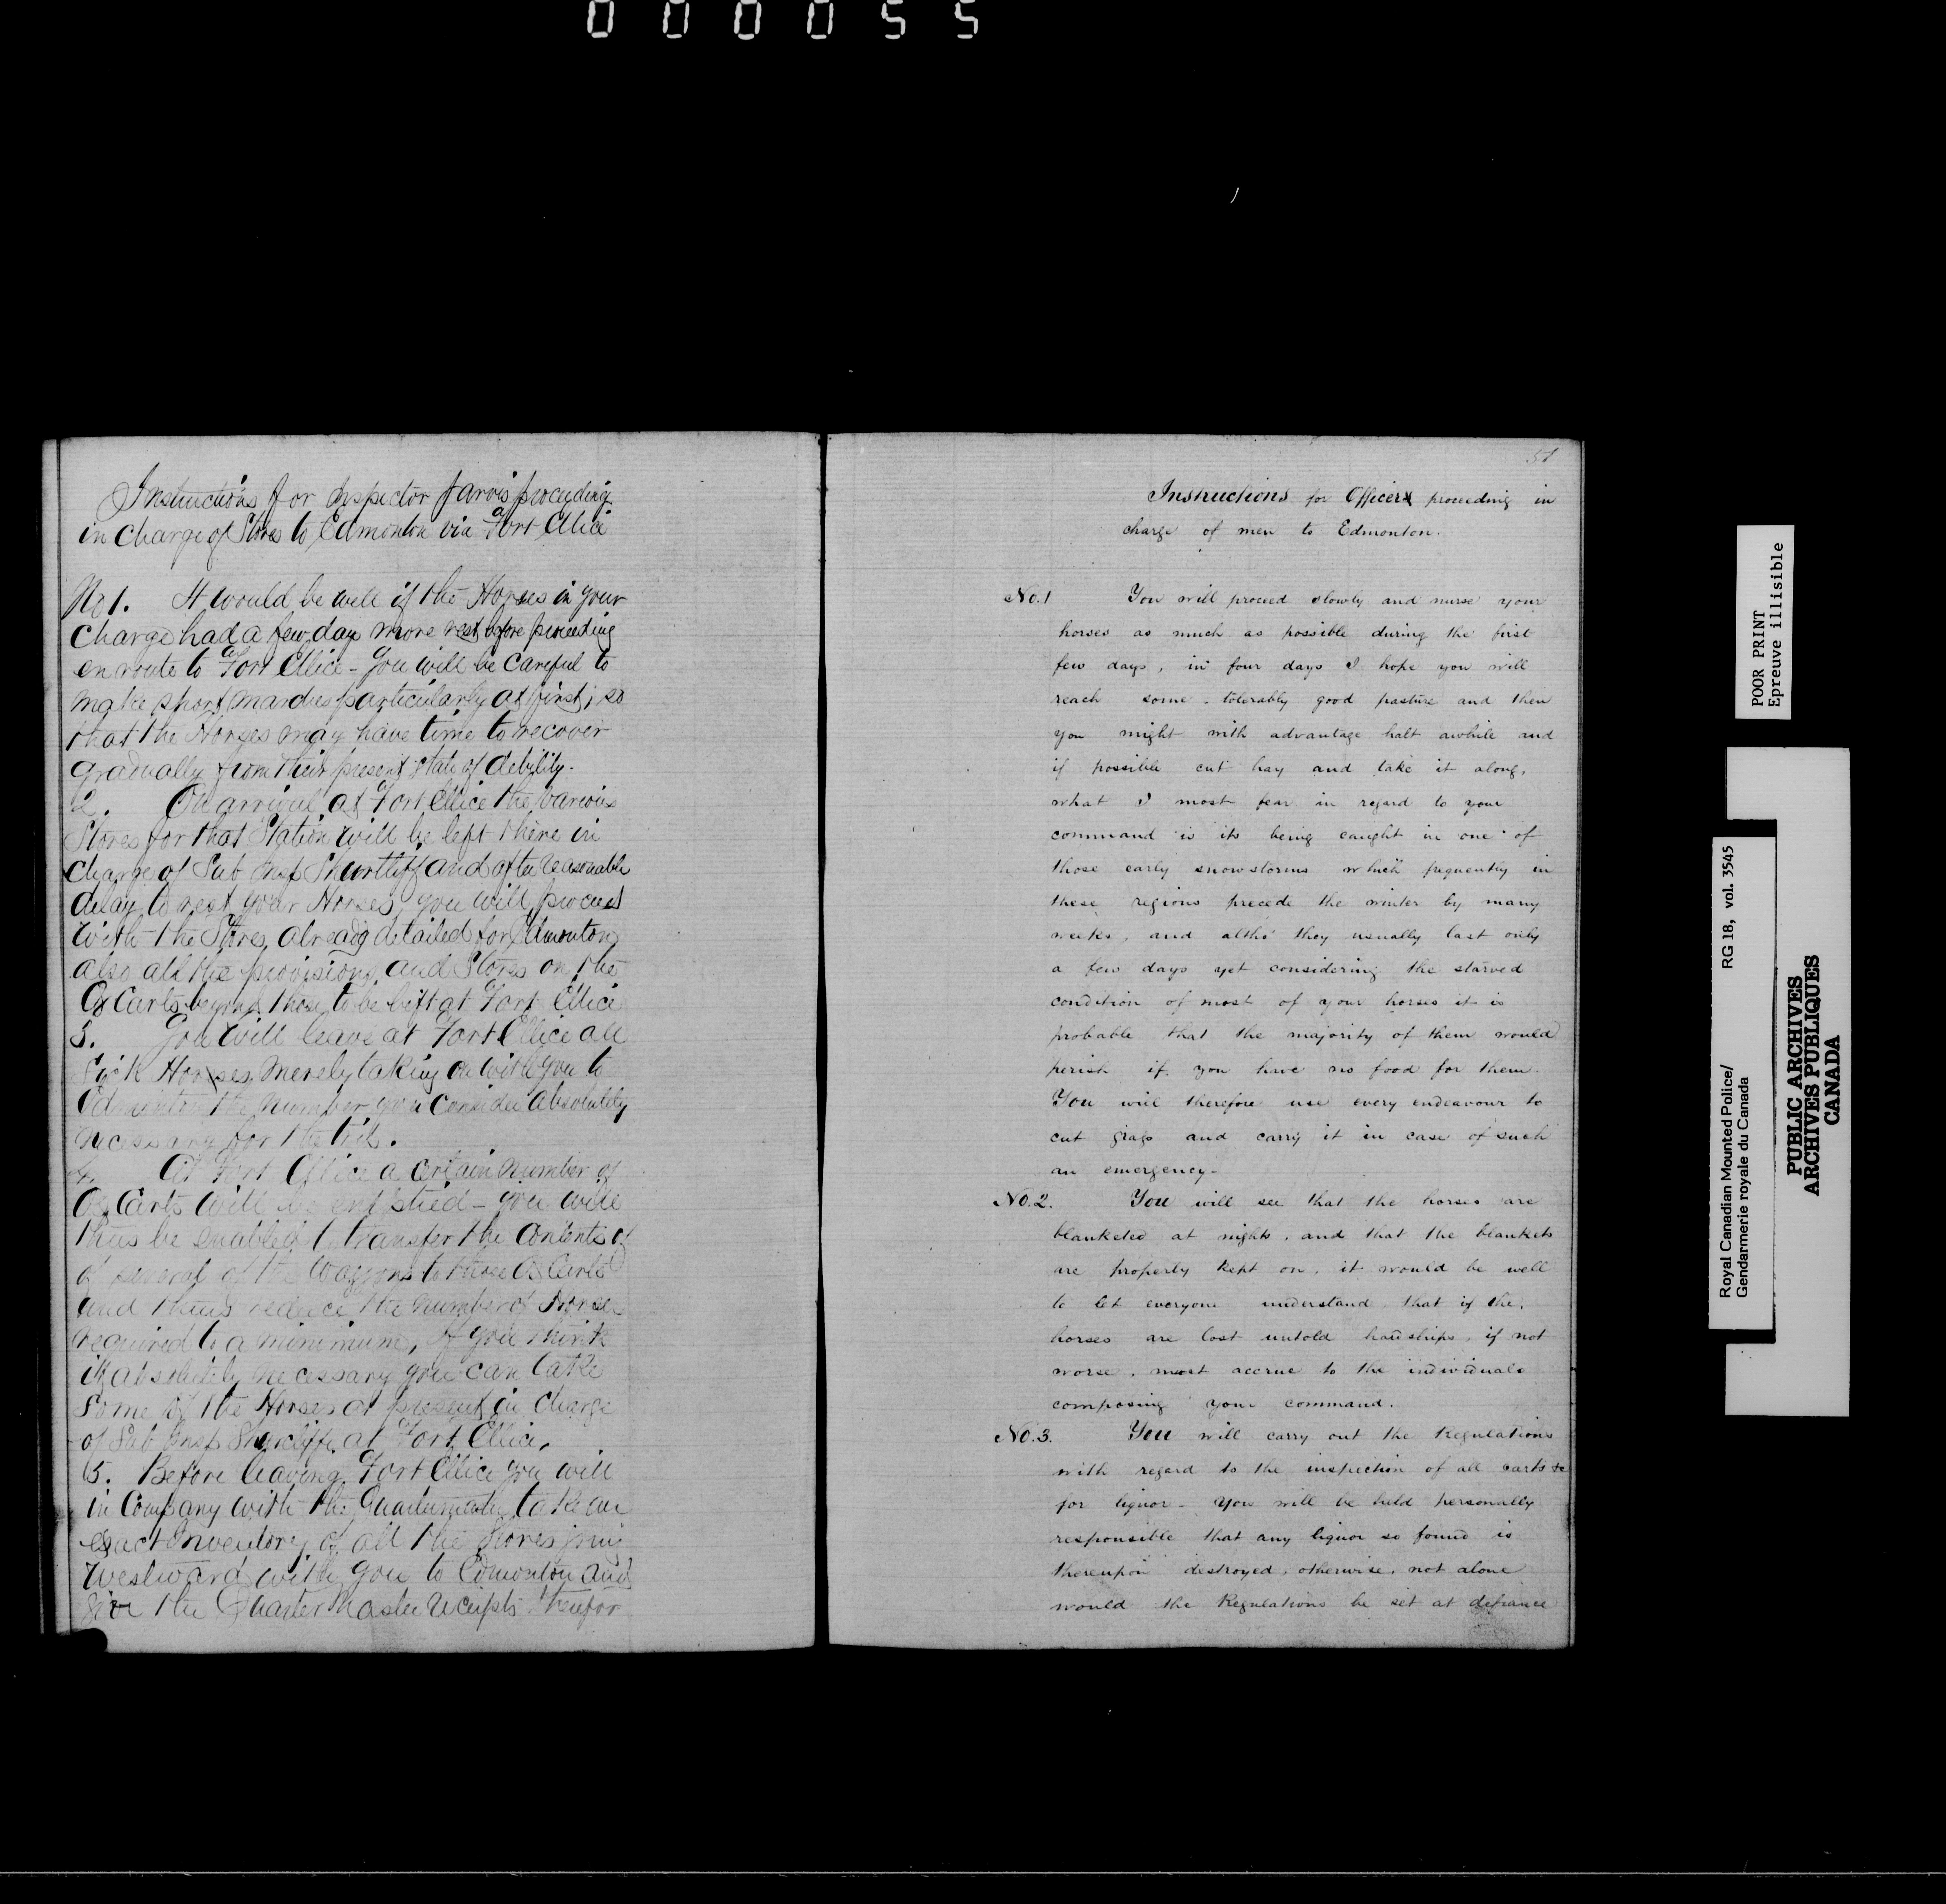 000055
Instructions for Inspector Jarvis proceeding
in charge of Stores to Edmonton via Fort Ellice
No 1. It would be well if the Horses in your
charge had a few days more rest before proceeding
en route to Fort Ellice - You will be careful to
make short marches particularly at first, so
that the Horses may have time to recover
gradually from their present state of debility.
2. On arrival at Fort Ellice the various
Stores for that Station will be left there in
charge of Sub Insp Shurtliff and after reasonable
delay to rest your Horses you will proceed
with the Stores already detailed for Edmonton
also all the provisions and Stores on the
Ox Carts beyond those to be left at Fort Ellice
3. You will leave at Fort Ellice all
Sick Horses merely taking on with you to
Edmonton the number you consider absolutely
necessary for the trip.
4. At Fort Ellice a certain number of
Ox Carts will be emptied - you will
thus be enabled to transfer the contents of
of several of the Waggons to those Ox Carts
and thus reduce the number of Horses
required to a minimum, if you think
it absolutely necessary you can take
some of the Horses at present in charge
of Sub Insp Shurcliffe at Fort Ellice.
5. Before leaving Fort Ellice you will
in Company with the Quartermaster take an
exact Inventory of all the Stores going
Westward with you to Edmonton and
give the Quarter Master receipts therefor
51
Instructions for Officer proceeding in
charge of men to Edmonton.
No. 1 You will proceed slowly and nurse your
horses as much as possible during the first
few days, in four days I hope you will
reach some tolerably good pasture and then
you might with advantage halt awhile and
if possible cut hay and take it along,
what I most fear in regard to your
command is its being caught in one of
those early snowstorms which frequently in
these regions precede the winter by many
weeks, and altho' they usually last only
a few days yet considering the starved
condition of most of your horses it is
probable that the majority of them would
perish if you have no food for them.
You will therefore use every endeavour to
cut grass and carry it in case of such
an emergency-
No. 2. You will see that the horses are
blanketed at nights, and that the blankets
are properly kept on, it would be well
to let everyone understand that if the
horses are lost untold hardships, if not
worse, must accrue to the individuals
composing your command.
No. 3. You will carry out the Regulations
with regard to the inspection of all carts &c
for liquor - You will be held personally
responsible that any liquor so found is
thereupon destroyed, otherwise, not alone
would the Regulations be set at defiance
POOR PRINT
Epreuve illisible
Royal Canadian Mounted Police/ RG 18, vol. 3545
Gendarmerie royale du Canada
PUBLIC ARCHIVES
ARCHIVES PUBLIQUES
CANADA